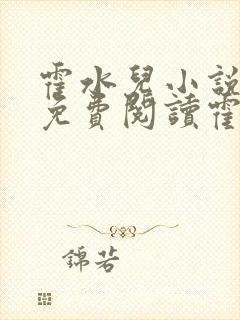 霍水兒小說
免費閱讀霍
錦若